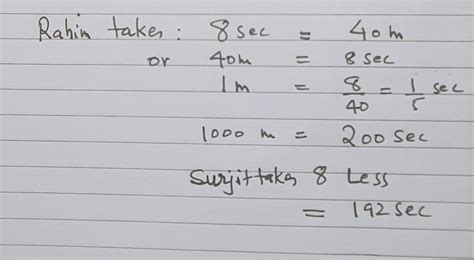 Rahim takes : 8 sec = 40m
or 40m = 8 sec
1m = 8/40 = 1/5 sec
1000 m = 200 sec
Surjit takes 8 Less
= 192 sec